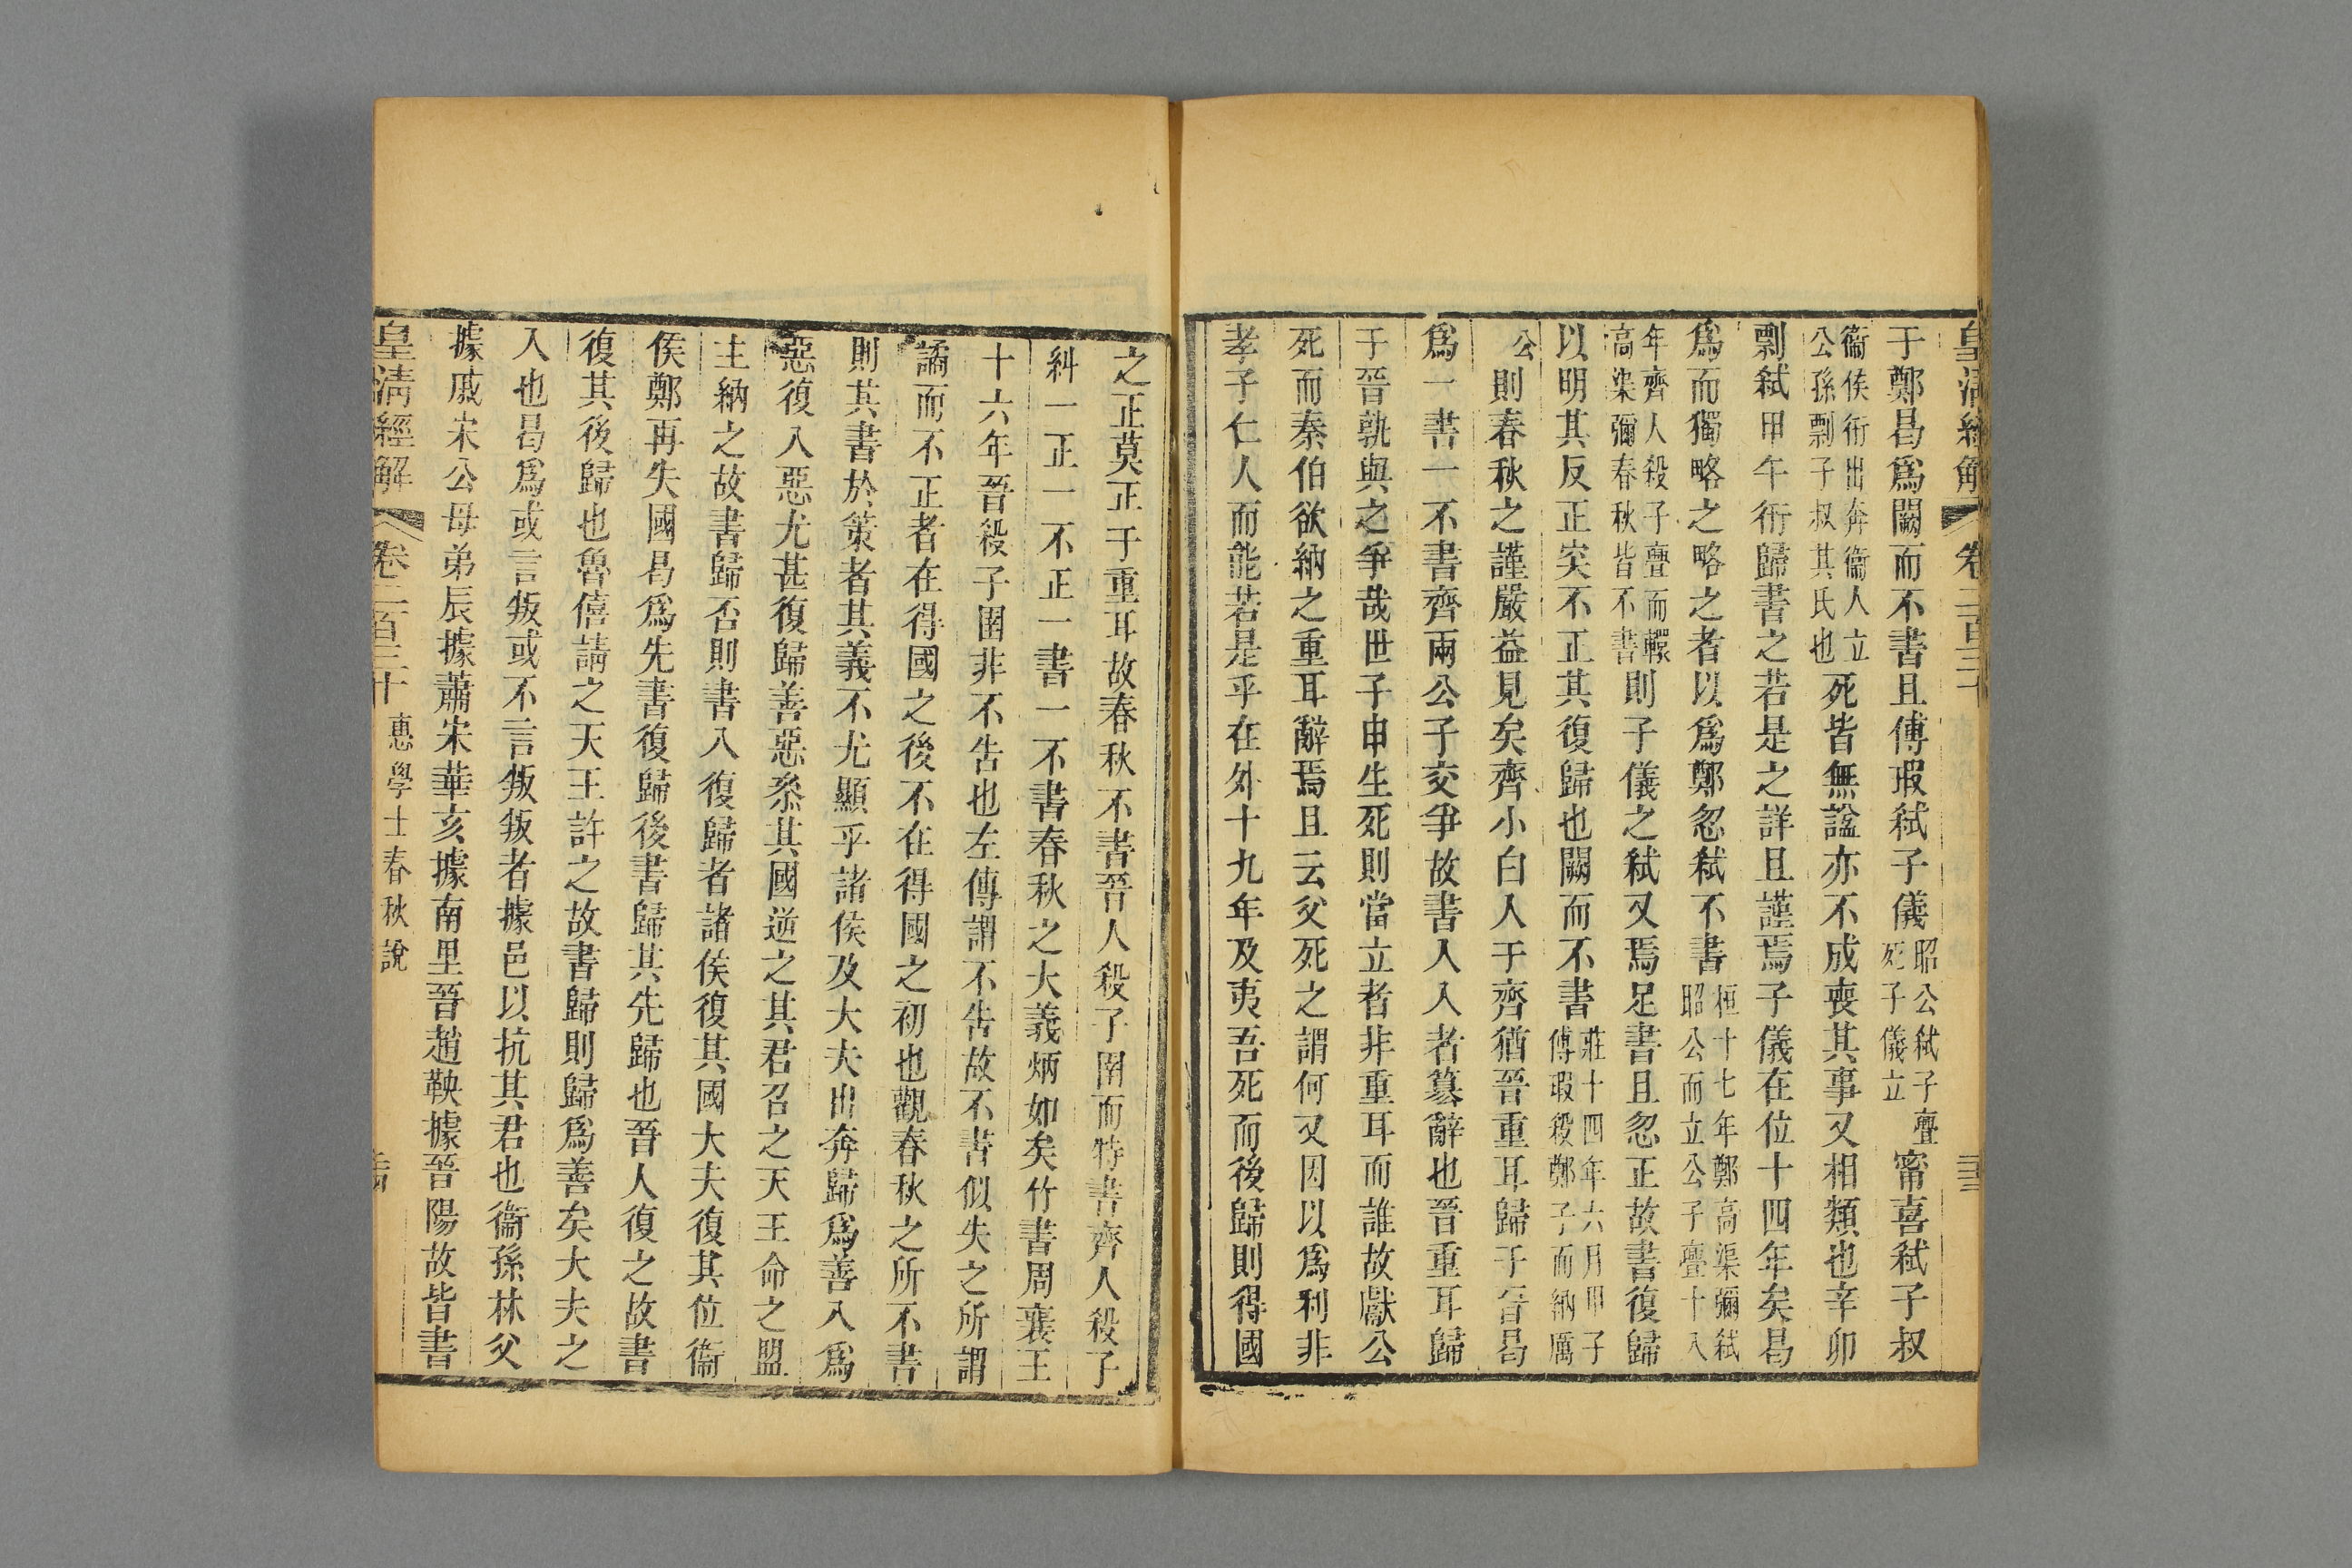 皇清經解 卷二百三十
于鄭曷爲闕而不書且傅瑕弑子儀昭公弑子亹死子儀立甯喜弑子叔
衞侯衎出奔衞人立公孫剽子叔其氏也死皆無諡亦不成喪其事又相類也辛卯
剽弑甲午衎歸書之若是之詳且謹焉子儀在位十四年矣曷
爲而獨略之略之者以爲鄭忽弑不書桓十七年鄭高渠彌弑昭公而立公子亹十八
年齊人殺子亹而轘高渠彌春秋皆不書則子儀之弑又焉足書且忽正故書復歸
以明其反正突不正其復歸也闕而不書莊十四年六月甲子傅瑕殺鄭子而納厲
公則春秋之謹嚴益見矣齊小白入于齊猶晉重耳歸于晉曷
爲一書一不書齊兩公子交爭故書入入者篡辭也晉重耳歸
于晉孰與之爭哉世子申生死則當立者非重耳而誰故獻公
死而秦伯欲納之重耳辭焉且云父死之謂何又因以爲利非
孝子仁人而能若是乎在外十九年及夷吾死而後歸則得國
之正莫正于重耳故春秋不書晉人殺子圉而特書齊人殺子
糾一正一不正一書一不書春秋之大義炳如矣竹書周襄王
十六年晉殺子圉非不告也左傳謂不告故不書似失之所謂
譎而不正者在得國之後不在得國之初也觀春秋之所不書
則其書於策者其義不尤顯乎諸侯及大夫出奔歸爲善入爲
惡復入惡尤甚復歸善惡系其國逆之其君召之天王命之盟
主納之故書歸否則書入復歸者諸侯復其國大夫復其位衞
侯鄭再失國曷爲先書復歸後書歸其先歸也晉人復之故書
復其後歸也魯僖請之天王許之故書歸則歸爲善矣大夫之
入也曷爲或言叛或不言叛叛者據邑以抗其君也衞孫林父
據戚宋公母弟辰據蕭宋華亥據南里晉趙鞅據晉陽故皆書
皇清經解 卷二百三十 惠學士春秋說